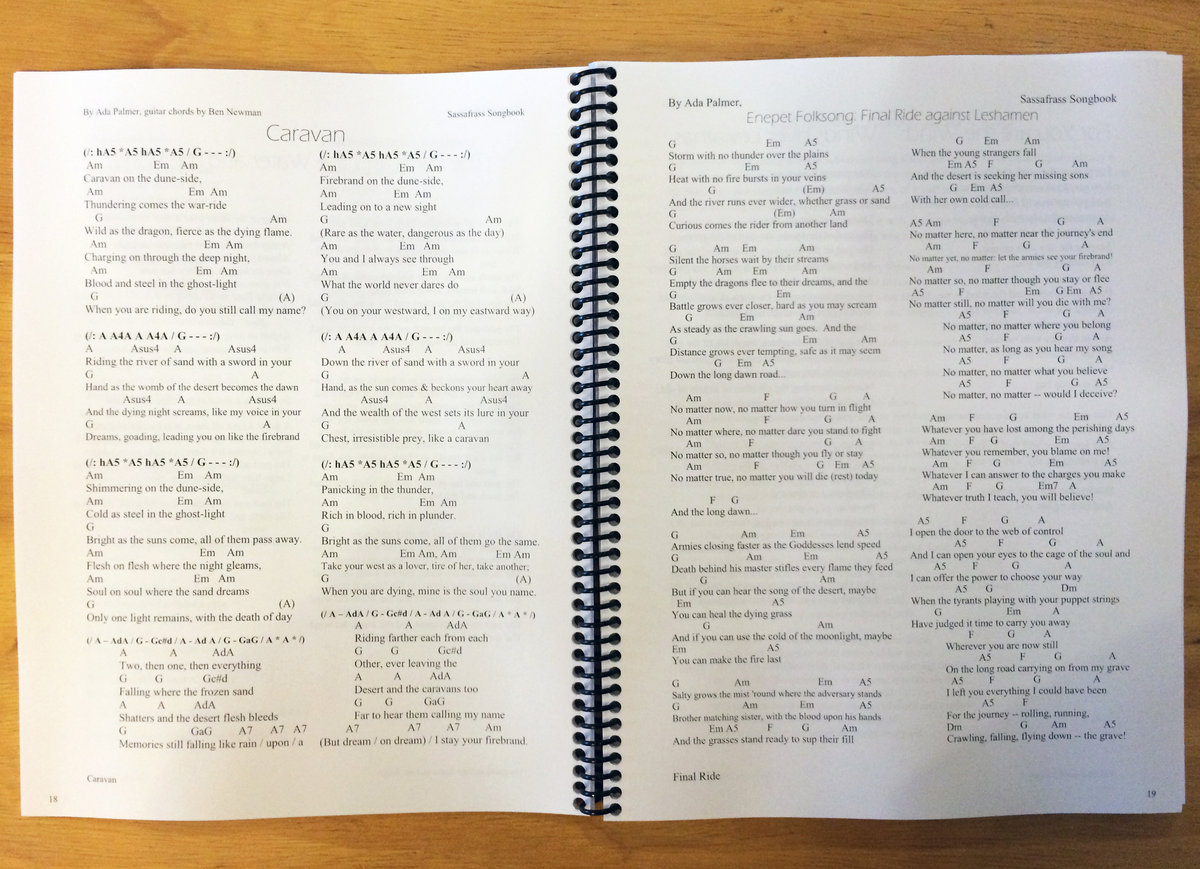 By Ada Palmer, guitar chords by Ben Newman
Sassafrass Songbook
Caravan
(/: hA5 *A5 hA5 *A5 / G - - - :/)
Am Em Am
Caravan on the dune-side,
Am Em Am
Thundering comes the war-ride
G Am
Wild as the dragon, fierce as the dying flame.
Am Em Am
Charging on through the deep night,
Am Em Am
Blood and steel in the ghost-light
G (A)
When you are riding, do you still call my name?
(/: A A4A A A4A / G - - - :/)
A Asus4 A Asus4
Riding the river of sand with a sword in your
G A
Hand as the womb of the desert becomes the dawn
Asus4 A Asus4
And the dying night screams, like my voice in your
G A
Dreams, goading, leading you on like the firebrand
(/: hA5 *A5 hA5 *A5 / G - - - :/)
Am Em Am
Shimmering on the dune-side,
Am Em Am
Cold as steel in the ghost-light
G
Bright as the suns come, all of them pass away.
Am Em Am
Flesh on flesh where the night gleams,
Am Em Am
Soul on soul where the sand dreams
G (A)
Only one light remains, with the death of day
(/ A – AdA / G - Gc#d / A - Ad A / G - GaG / A * A * /)
A A AdA
Two, then one, then everything
G G Gc#d
Falling where the frozen sand
A A AdA
Shatters and the desert flesh bleeds
G GaG A7 A7 A7
Memories still falling like rain / upon / a
(/: hA5 *A5 hA5 *A5 / G - - - :/)
Am Em Am
Firebrand on the dune-side,
Am Em Am
Leading on to a new sight
G Am
(Rare as the water, dangerous as the day)
Am Em Am
You and I always see through
Am Em Am
What the world never dares do
G (A)
(You on your westward, I on my eastward way)
(/: A A4A A A4A / G - - - :/)
A Asus4 A Asus4
Down the river of sand with a sword in your
G A
Hand, as the sun comes & beckons your heart away
Asus4 A Asus4
And the wealth of the west sets its lure in your
G A
Chest, irresistible prey, like a caravan
(/: hA5 *A5 hA5 *A5 / G - - - :/)
Am Em Am
Panicking in the thunder,
Am Em Am
Rich in blood, rich in plunder.
G
Bright as the suns come, all of them go the same.
Am Em Am, Am Em Am
Take your west as a lover, tire of her, take another;
G (A)
When you are dying, mine is the soul you name.
(/ A – AdA / G - Gc#d / A - Ad A / G - GaG / A * A * /)
A A AdA
Riding farther each from each
G G Gc#d
Other, ever leaving the
A A AdA
Desert and the caravans too
G G GaG
Far to hear them calling my name
A7 A7 A7 Am
(But dream / on dream) / I stay your firebrand.
Caravan
18
By Ada Palmer,
Sassafrass Songbook
Enepet Folksong: Final Ride against Leshamen
G Em A5
Storm with no thunder over the plains
G Em A5
Heat with no fire bursts in your veins
G (Em) A5
And the river runs ever wider, whether grass or sand
G (Em) Am
Curious comes the rider from another land
G Am Em Am
Silent the horses wait by their streams
G Am Em Am
Empty the dragons flee to their dreams, and the
G Em
Battle grows ever closer, hard as you may scream
G Em Am
As steady as the crawling sun goes. And the
G Em Am
Distance grows ever tempting, safe as it may seem
G Em A5
Down the long dawn road...
Am F G A
No matter now, no matter how you turn in flight
Am F G A
No matter where, no matter dare you stand to fight
Am F G A
No matter so, no matter though you fly or stay
Am F G Em A5
No matter true, no matter you will die (rest) today
F G
And the long dawn...
G Am Em A5
Armies closing faster as the Goddesses lend speed
G Am Em A5
Death behind his master stifles every flame they feed
G Am
But if you can hear the song of the desert, maybe
Em A5
You can heal the dying grass
G Am
And if you can use the cold of the moonlight, maybe
Em A5
You can make the fire last
G Am Em A5
Salty grows the mist 'round where the adversary stands
G Am Em A5
Brother matching sister, with the blood upon his hands
Em A5 F G Am
And the grasses stand ready to sup their fill
G Em Am
When the young strangers fall
Em A5 F G Am
And the desert is seeking her missing sons
G Em A5
With her own cold call...
A5 Am F G A
No matter here, no matter near the journey's end
Am F G A
No matter yet, no matter: let the armies see your firebrand!
Am F G A
No matter so, no matter though you stay or flee
A5 F Em G Em A5
No matter still, no matter will you die with me?
A5 F G A
No matter, no matter where you belong
A5 F G A
No matter, as long as you hear my song
A5 F G A
No matter, no matter what you believe
A5 F G A5
No matter, no matter -- would I deceive?
Am F G Em A5
Whatever you have lost among the perishing days
Am F G Em A5
Whatever you remember, you blame on me!
Am F G Em A5
Whatever I can answer to the charges you make
Am F G Em7 A
Whatever truth I teach, you will believe!
A5 F G A
I open the door to the web of control
A5 F G A
And I can open your eyes to the cage of the soul and
A5 F G A
I can offer the power to choose your way
A5 G Dm
When the tyrants playing with your puppet strings
G Em A
Have judged it time to carry you away
F G A
Wherever you are now still
A5 F G A
On the long road carrying on from my grave
A5 F G A
I left you everything I could have been
A5 F
For the journey -- rolling, running,
Dm G Am A5
Crawling, falling, flying down -- the grave!
Final Ride
19